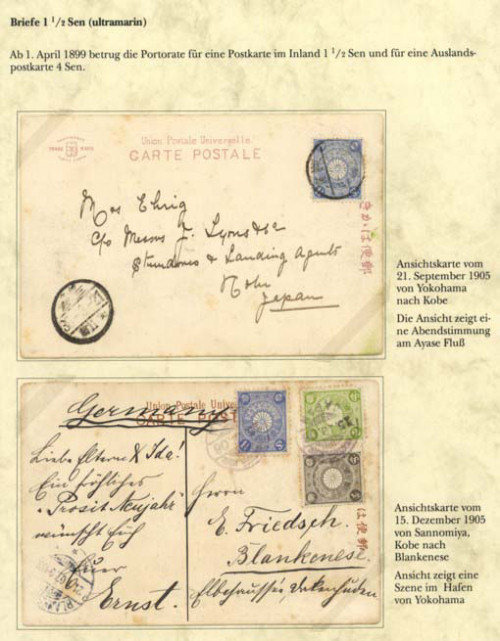 Briefe 1 1/2 Sen (ultramarin)
Ab 1. April 1899 betrug die Portorate für eine Postkarte im Inland 1 1/2 Sen und für eine Auslands-
postkarte 4 Sen.
Union Postale Universelle
CARTE POSTALE
きかは便郵
Mrs Ehrig
c/o Messrs J. Lyons & Co
Stevedores & Landing Agents
Kobe
Japan
Ansichtskarte vom
21. September 1905
von Yokohama
nach Kobe
Die Ansicht zeigt ei-
ne Abendstimmung
am Ayase Fluß
Union Postale Univer
CARTE POST
は便郵
Germany
Liebe Eltern & Ida!
Ein fröhliches
"Prosit Neujahr"
wünscht Euch
Euer
Ernst.
Herrn
E. Friedsch.
Blankenese.
Ansichtskarte vom
15. Dezember 1905
von Sannomiya,
Kobe nach
Blankenese
Ansicht zeigt eine
Szene im Hafen
von Yokohama